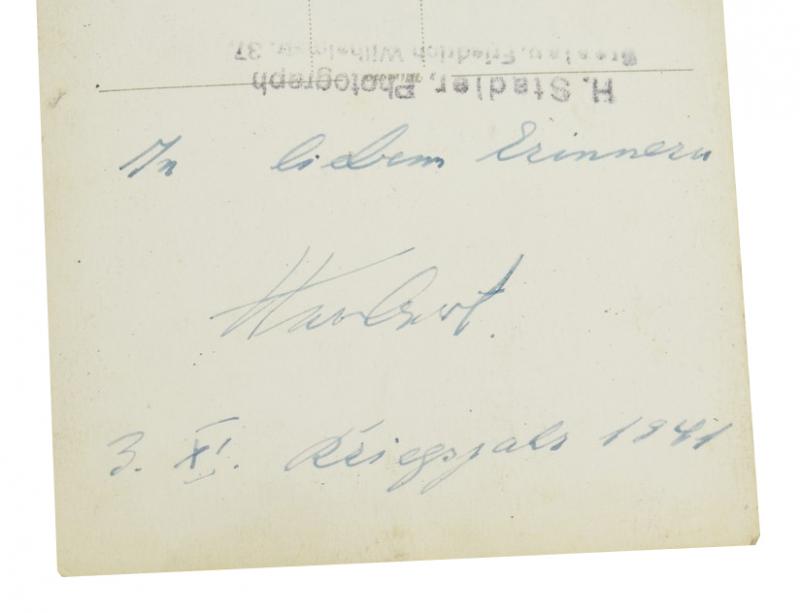 H. Stadler, Photograph
Breslau, Friedrich Wilhelmstr. 37.
In liebem Erinnern
Herbert.
3. XI. Kriegsjahr 1941